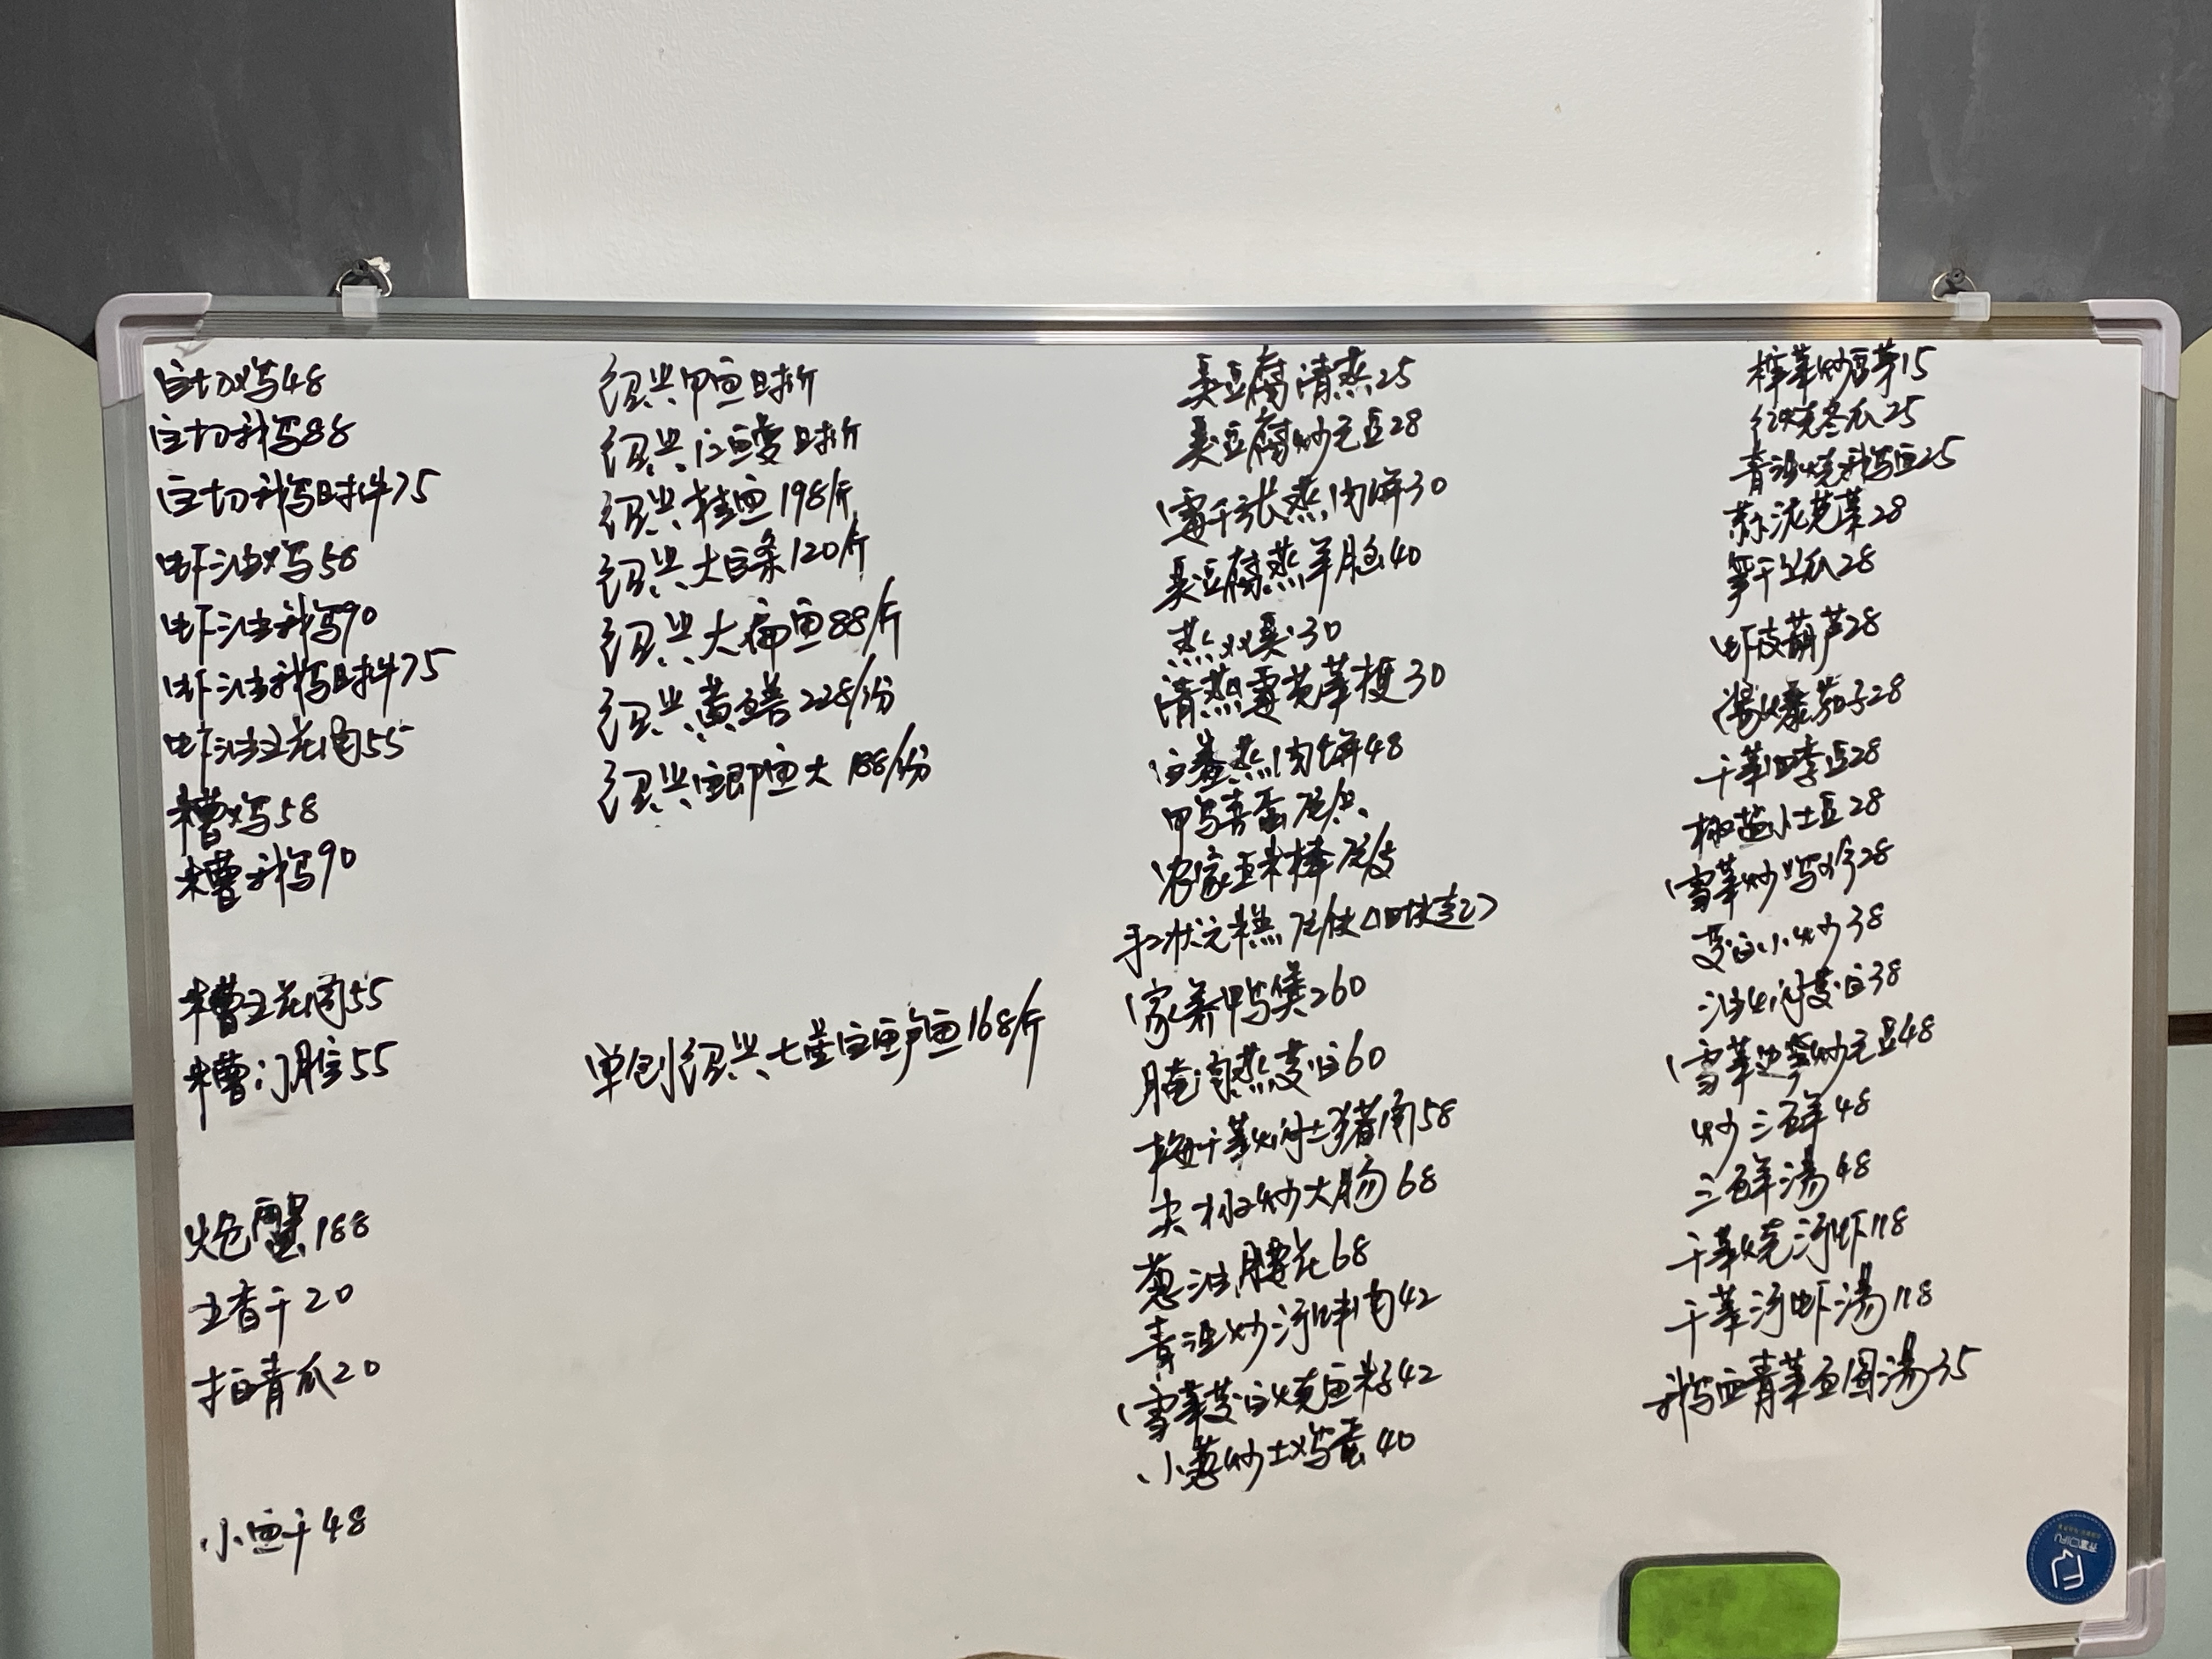 白切鸡48
白切鹅88
白切鹅时件75
虾油鸡58
虾油鹅90
虾油鹅时件75
虾油五花肉55
糟鸡58
糟鹅90
糟五花肉55
糟门腔55
炝蟹188
五香干20
拍青瓜20
小鱼干48
绍兴甲鱼时价
绍兴江鳗时价
绍兴桂鱼198/斤
绍兴大白条120/斤
绍兴大扁鱼88/斤
绍兴黄鳝228/份
绍兴鲫鱼大188/份
单创绍兴七星鲈鱼168/斤
臭豆腐清蒸25
臭豆腐炒毛豆28
霉千张蒸肉饼30
臭豆腐蒸羊脑40
蒸双臭30
清蒸霉苋菜梗30
白鲞蒸肉饼48
鸭喜蛋7元/只
农家玉米棒7元/支
手工状元糕7元/块<4块起>
家养鸭煲260
腌肉蒸茭白60
梅干菜焖土猪肉58
尖椒炒大肠68
葱油腰花68
青湴炒河蚌肉42
雪菜茭白烧鱼籽42
小葱炒土鸡蛋40
榨菜炒豆芽15
红烧冬瓜25
青湴烧鹅血25
蒜泥苋菜28
笋干丝瓜28
虾皮葫芦28
油爆茄子28
干菜四季豆28
椒盐小土豆28
雪菜炒鸡胗28
茭白小炒38
油焖茭白38
雪菜边笋炒毛豆48
炒三鲜48
三鲜汤48
干菜烧河虾118
干菜河虾汤118
鹅血青菜鱼圆汤35